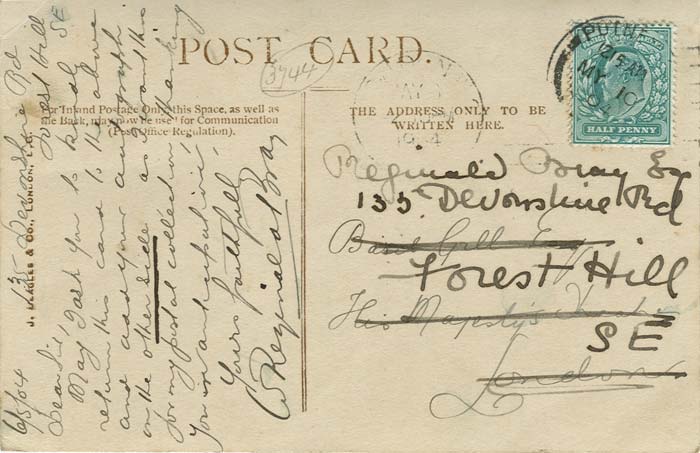 POST CARD.
3744
For Inland Postage Only this Space, as well as
the Back, may now be used for Communication
(Post Office Regulation).
THE ADDRESS ONLY TO BE
WRITTEN HERE.
J. BEAGLES & CO., LONDON, E.C.
135 Devonshire Rd
Forest Hill
SE
6/5/04
Dear Sir,
May I ask you to kindly
return this card to the above
and add your autograph
on the other side as I want this
for my postal collection. Thanking
you in anticipation,
Yours faithfully
W Reginald Bray
PUTNEY
12.15 AM
MY 10
04
HALF PENNY
Reginald Bray Esq
135 Devonshire Rd
Basil Gill Esq
Forest Hill
His Majesty's Theatre
SE
London